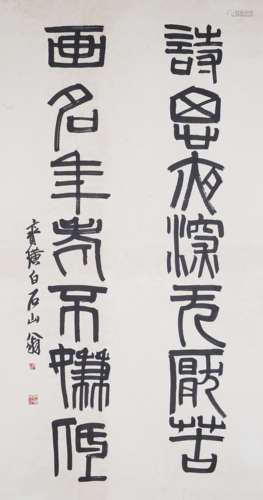 詩思夜深无厭苦
画名年老不嫌低
齊璜白石山翁